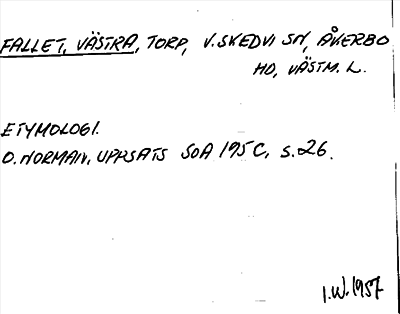 FALLET, VÄSTRA, TORP, V. SKEDVI SN, ÅKERBO
HD, VÄSTM. L.
ETYMOLOGI.
O. NORMAN, UPPSATS SOA 195C, S. 26.
I.W. 1957